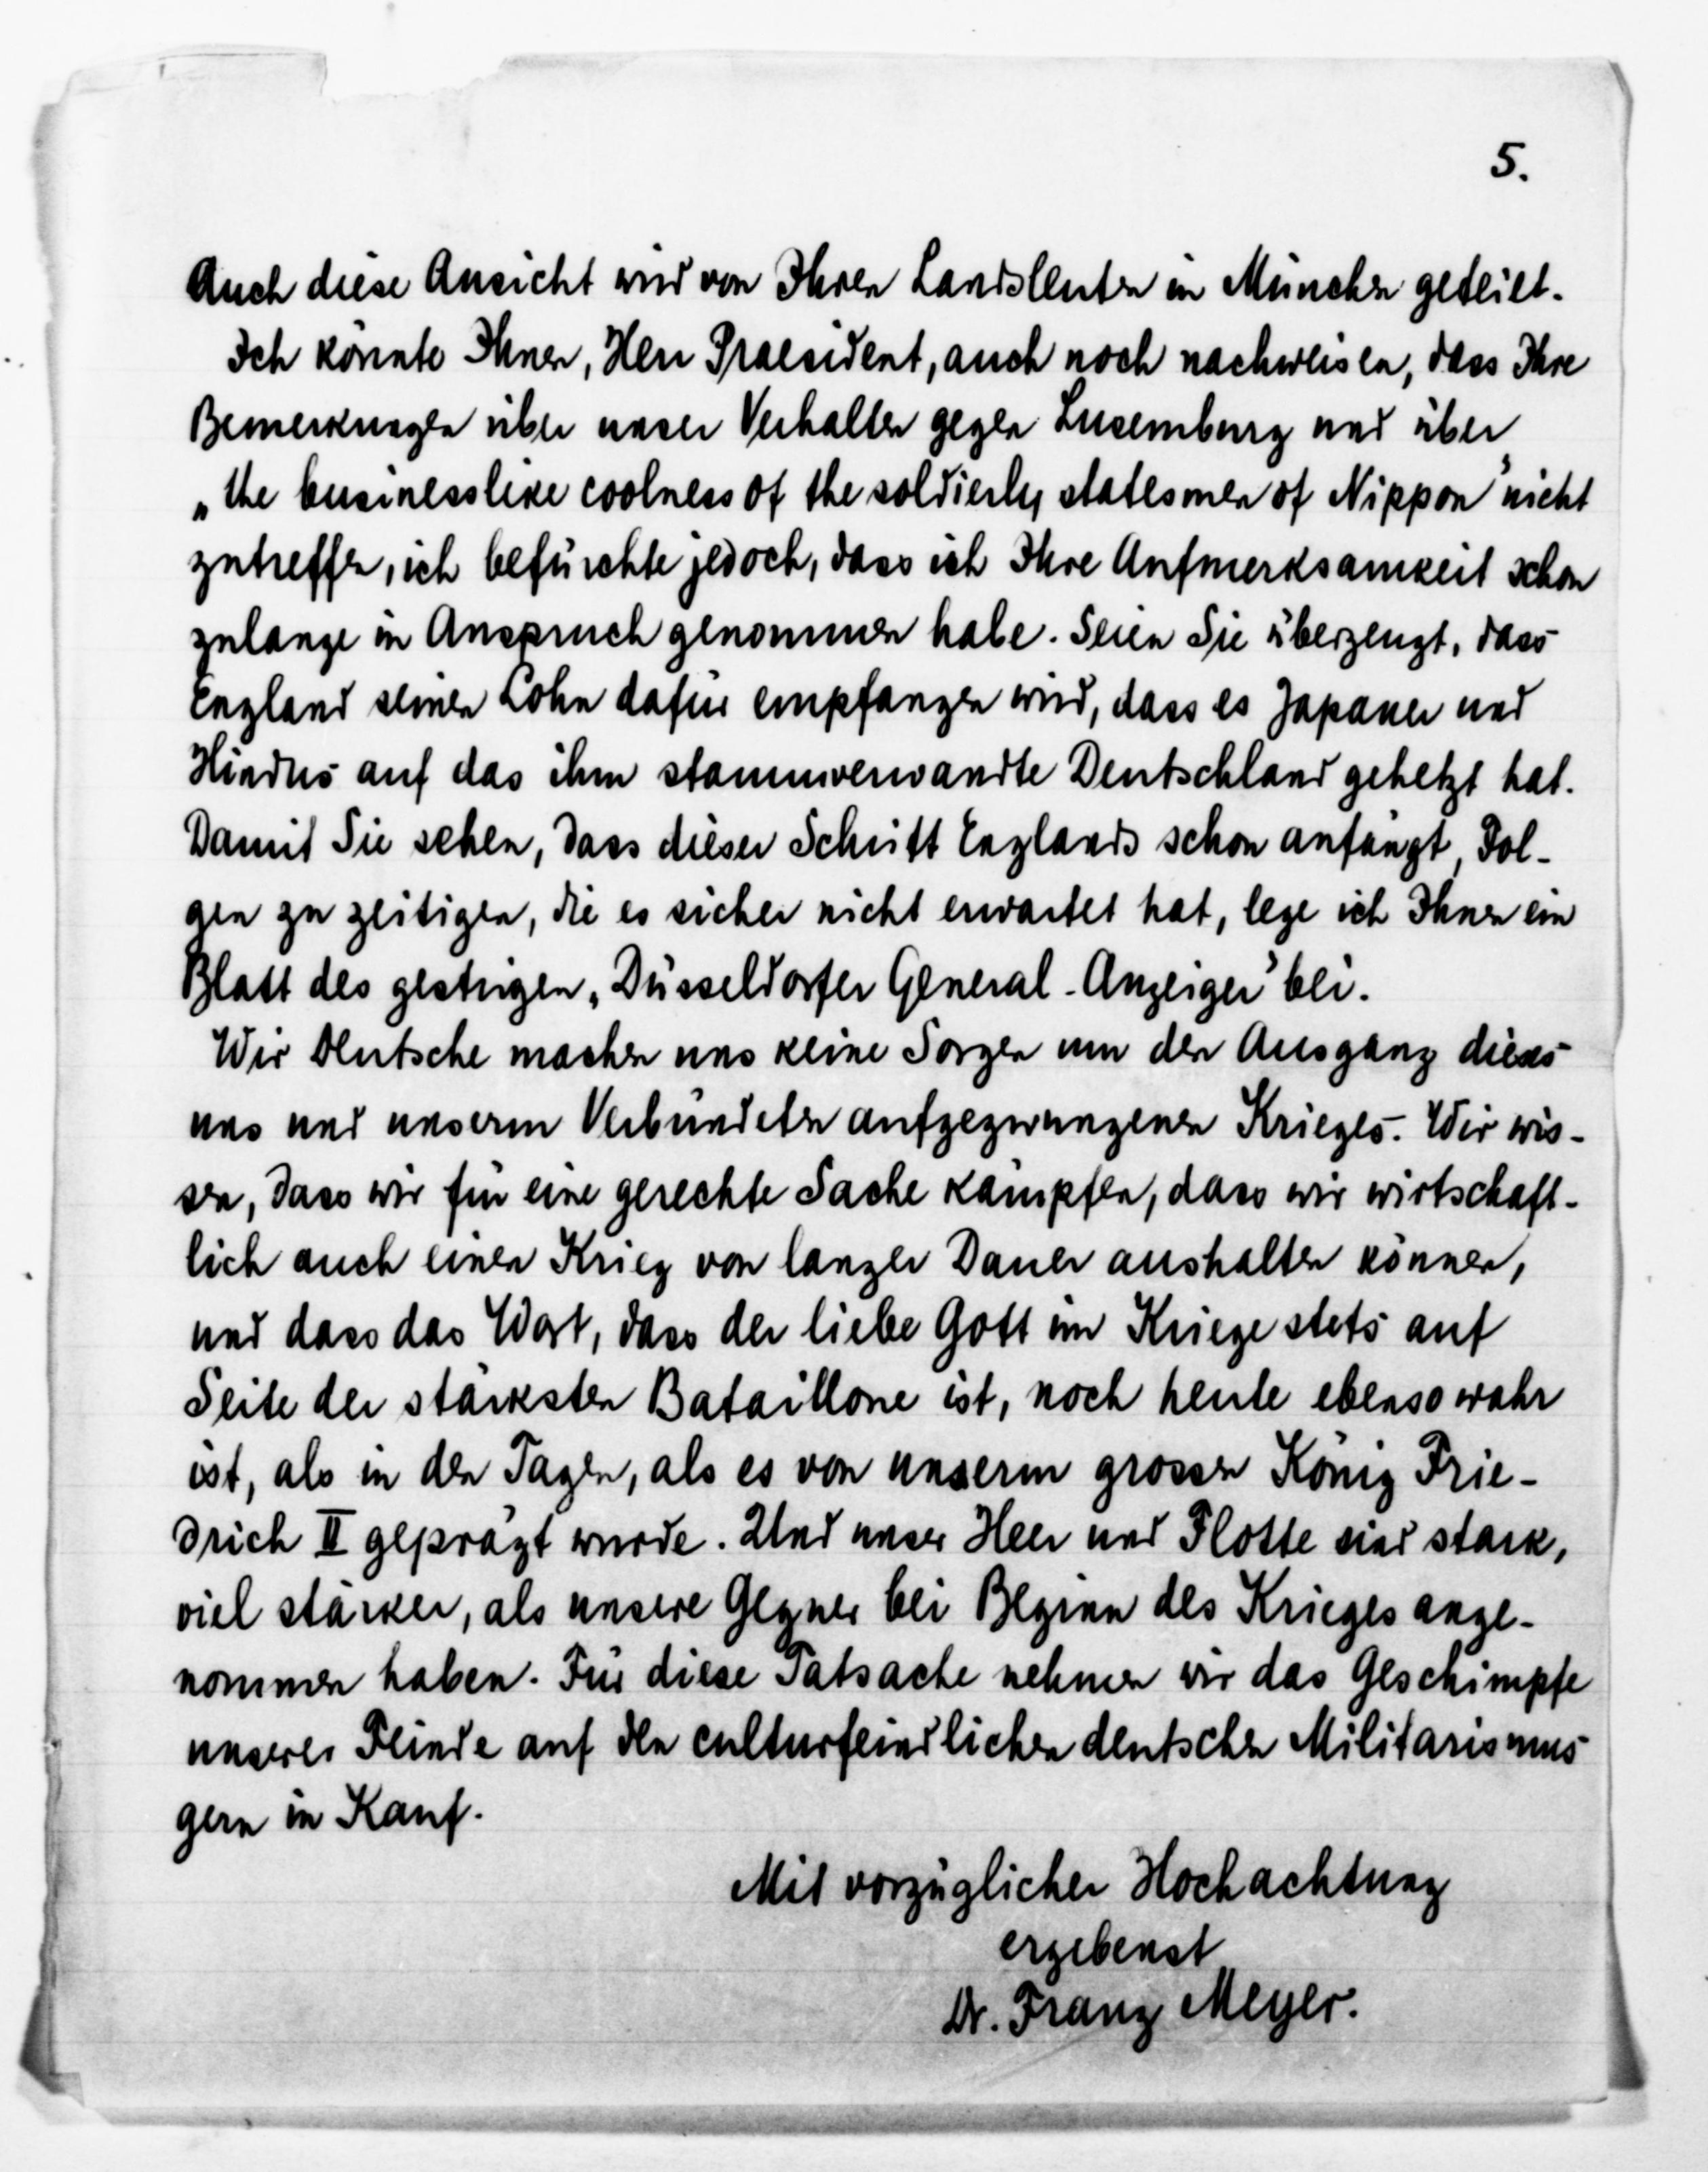 5.
Auch diese Ansicht wird von Ihren Landsleuten in München geteilt.
Ich könnte Ihnen, Herr Praesident, auch noch nachweisen, dass Ihre
Bemerkungen über unser Verhalten gegen Luxemburg und über
„the businesslike coolness of the soldierly statesmen of Nippon" nicht
zutreffen, ich befürchte jedoch, dass ich Ihre Aufmerksamkeit schon
zulange in Anspruch genommen habe. Seien Sie überzeugt, dass
England seinen Lohn dafür empfangen wird, dass es Japaner und
Hindus auf das ihm stammverwandte Deutschland gehetzt hat.
Damit Sie sehen, dass dieser Schritt Englands schon anfängt, Fol-
gen zu zeitigen, die es sicher nicht erwartet hat, lege ich Ihnen ein
Blatt des gestrigen „Düsseldorfer General-Anzeiger" bei.
Wir Deutsche machen uns keine Sorgen um den Ausgang dieses
uns und unserm Verbündeten aufgezwungenen Krieges. Wir wis-
sen, dass wir für eine gerechte Sache kämpfen, dass wir wirtschaft-
lich auch einen Krieg von langer Dauer aushalten können,
und dass das Wort, dass der liebe Gott im Kriege stets auf
Seite der stärksten Bataillone ist, noch heute ebenso wahr
ist, als in den Tagen, als es von unserm grossen König Frie-
drich II geprägt wurde. Und unser Heer und Flotte sind stark,
viel stärker, als unsere Gegner bei Beginn des Krieges ange-
nommen haben. Für diese Tatsache nehmen wir das Geschimpfe
unserer Feinde auf den culturfeindlichen deutschen Militarismus
gern in Kauf.
Mit vorzüglicher Hochachtung
ergebenst
Dr. Franz Meyer.